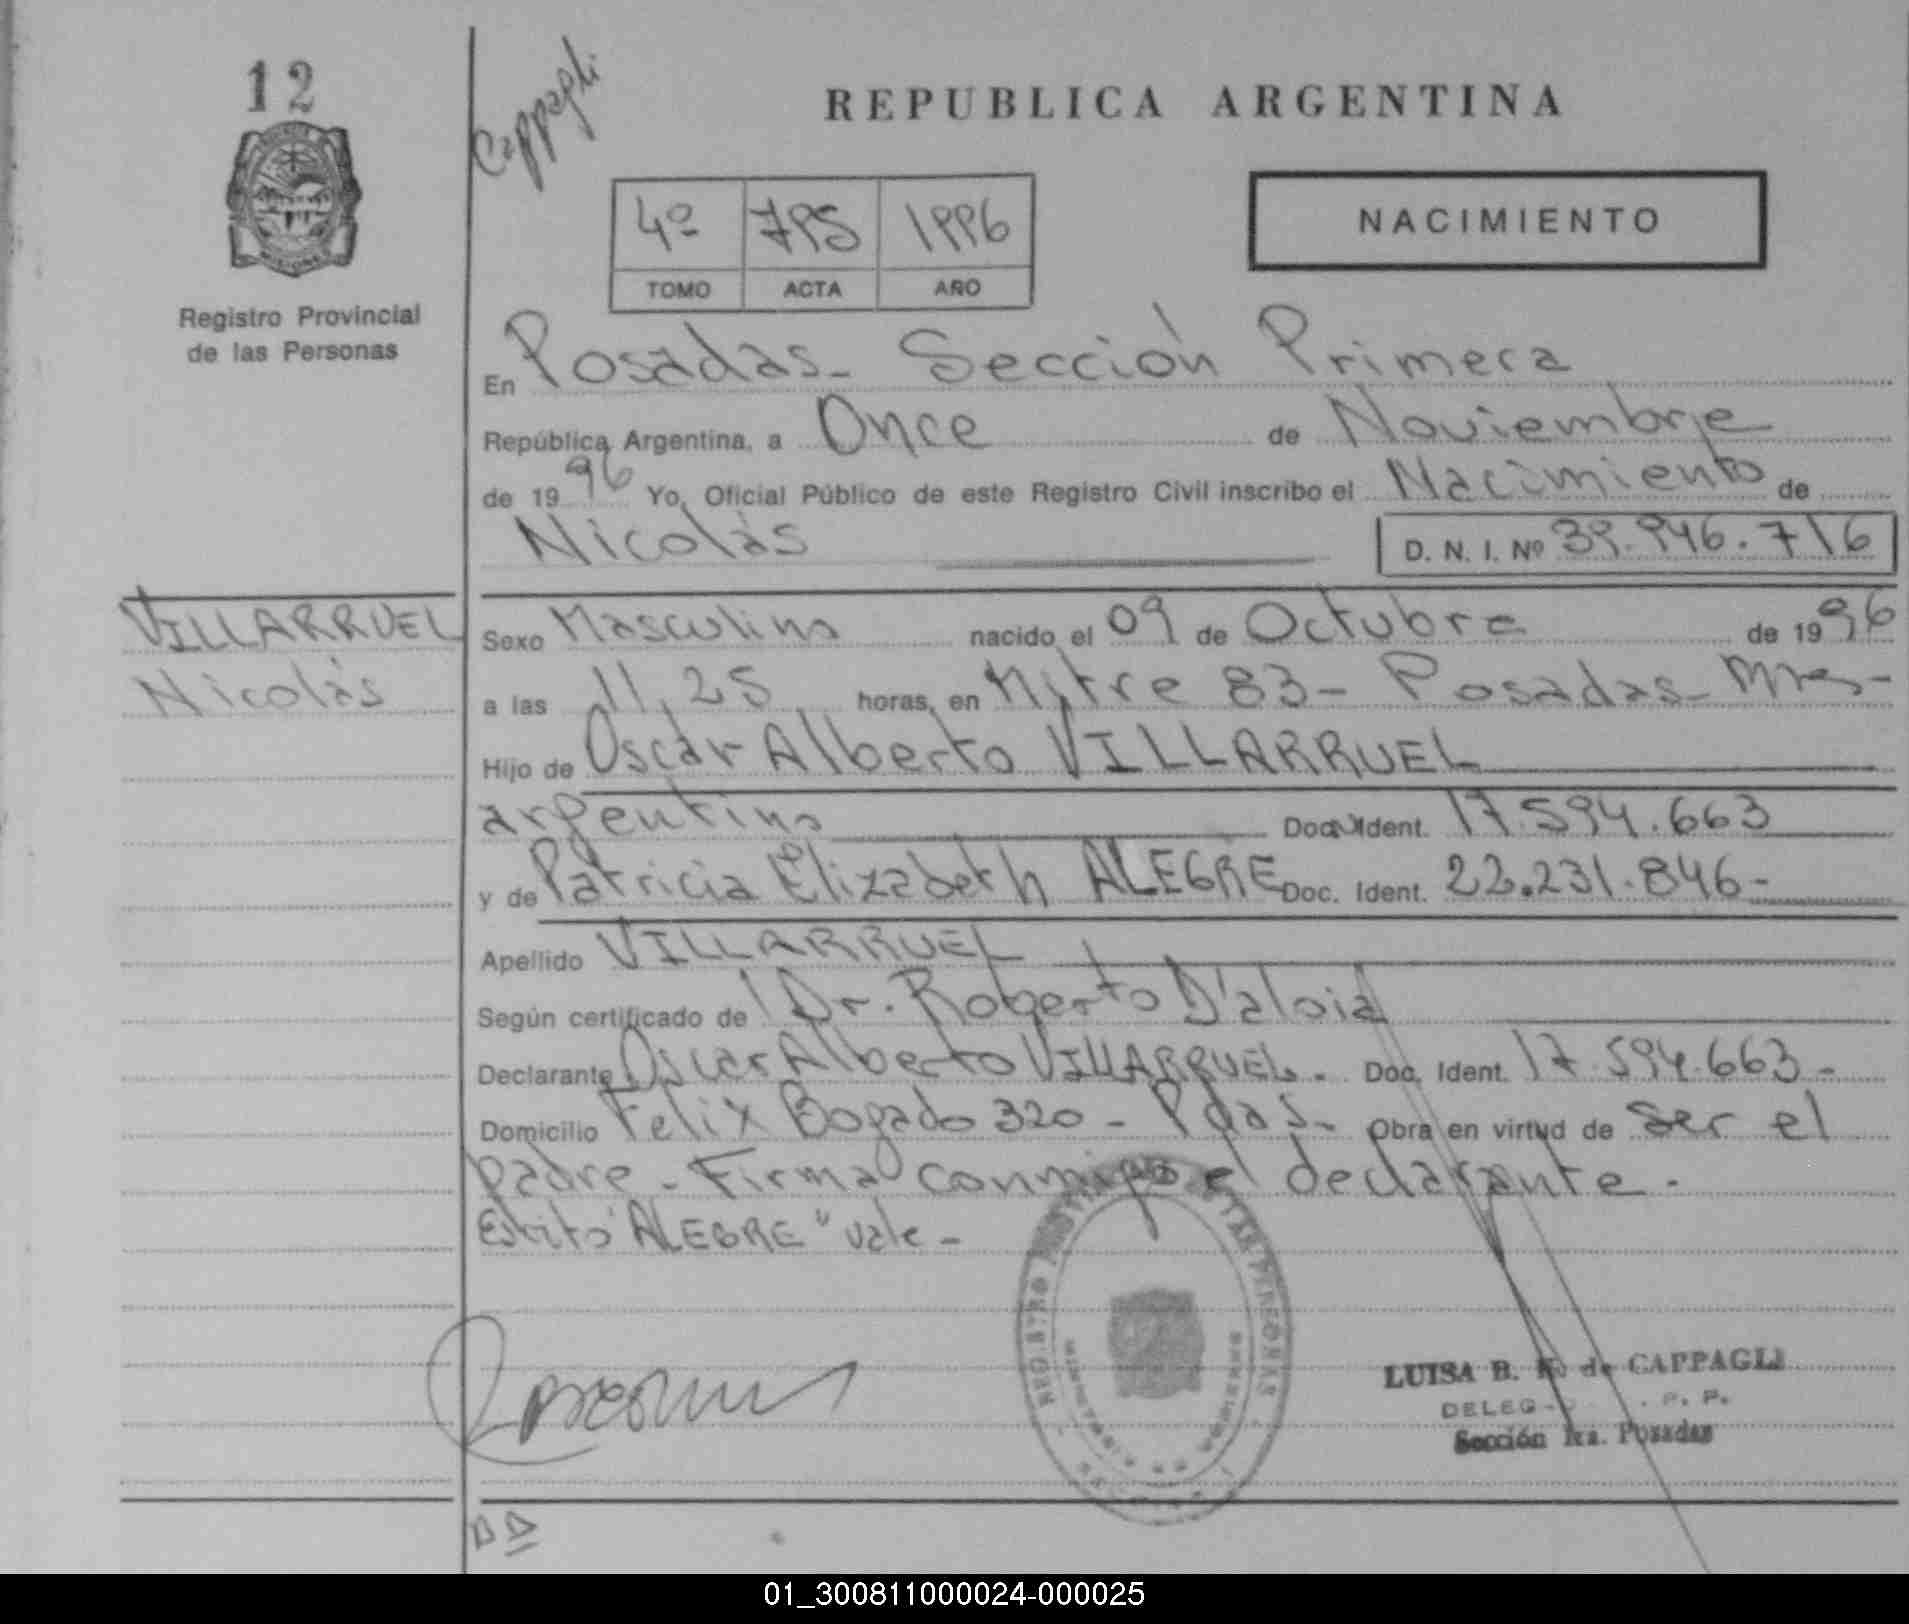 12
Cappagli
REPUBLICA ARGENTINA
4º 795 1996
TOMO ACTA AÑO
NACIMIENTO
Registro Provincial
de las Personas
En Posadas- Sección Primera
República Argentina, a Once de Noviembre
de 1996 Yo, Oficial Público de este Registro Civil inscribo el Nacimiento de
Nicolás D. N. I. Nº 39.946.716
VILLARRUEL
Nicolás
Sexo Masculino nacido el 09 de Octubre de 1996
a las 11,25 horas, en Mitre 83- Posadas- Mnes-
Hijo de Oscar Alberto VILLARRUEL
argentino Doc. Ident. 17.594.663
y de Patricia Elizabeth ALEGRE Doc. Ident. 22.231.846-
Apellido VILLARRUEL
Según certificado de Dr. Roberto D'aloia
Declarante Oscar Alberto VILLARRUEL. Doc. Ident. 17.594.663-
Domicilio Felix Bogado 320 - Pdas- Obra en virtud de ser el
padre - Firma conmigo el declarante.
"ALEGRE" vale-
LUISA B. de CAPPAGLI
Sección 1ra. Posadas
01_300811000024-000025